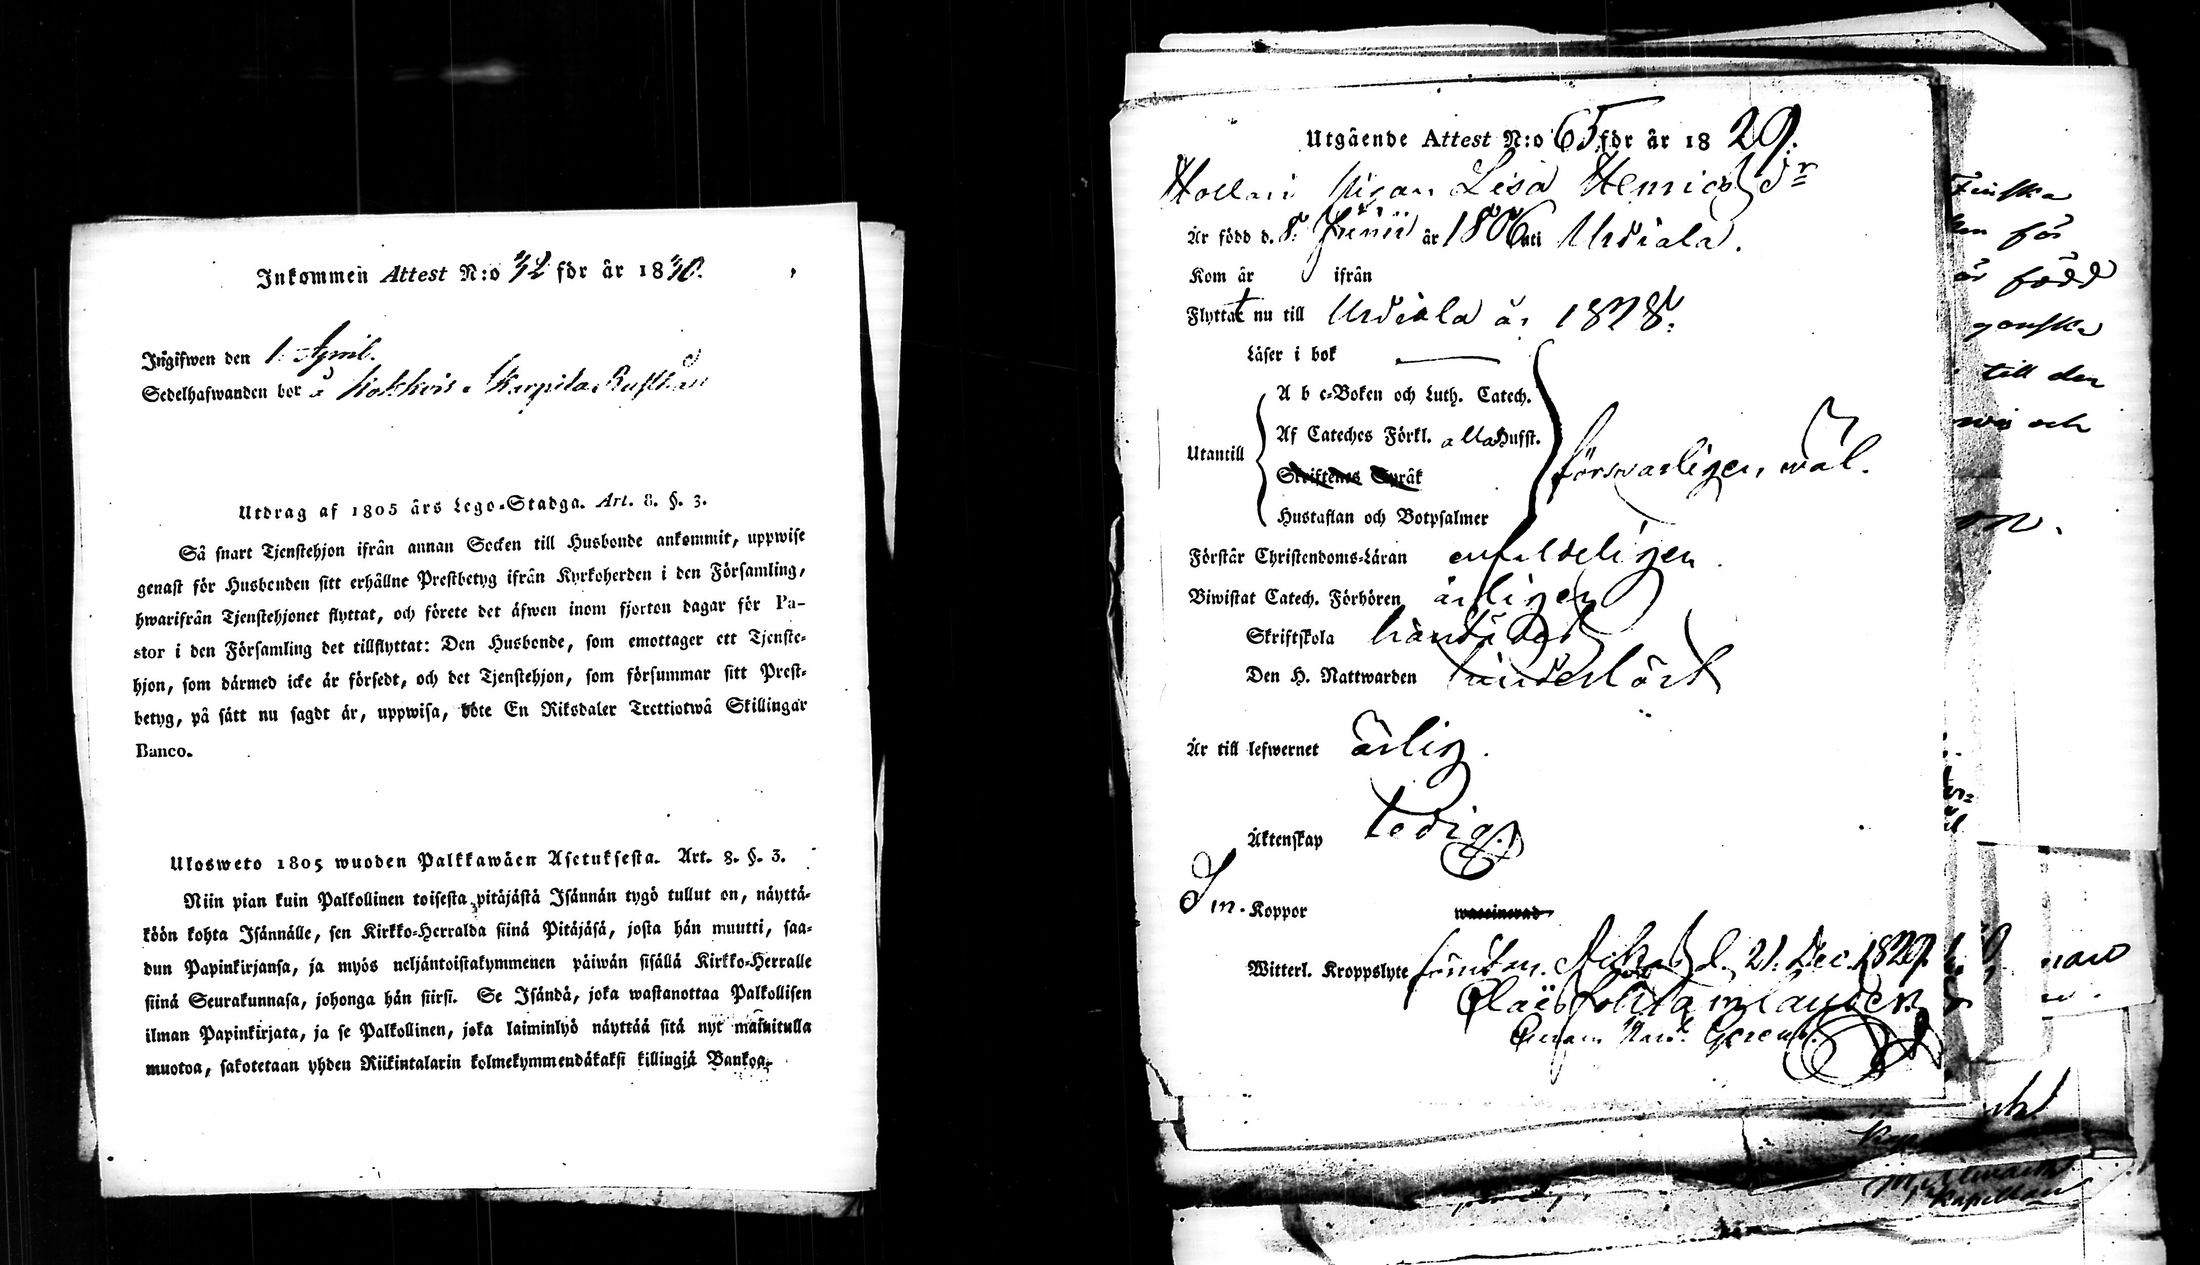 Inkommen Attest N:o 32 för år 1830.
Ingifwen den 1. April.
Sedelhafwanden bor å Skarpila Rusthåll
Utdrag af 1805 års Lego-Stadga. Art. 8. §. 3.
Så snart Tjenstehjon ifrån annan Socken till Husbonde ankommit, uppwise
genast för Husbonden sitt erhållne Prestbetyg ifrån Kyrkoherden i den Församling,
hwarifrån Tjenstehjonet flyttat, och förete det äfwen inom fjorton dagar för Pa-
stor i den Församling det tillflyttat: Den Husbonde, som emottager ett Tjenste-
hjon, som därmed icke är försedt, och det Tjenstehjon, som försummar sitt Prest-
betyg, på sätt nu sagdt är, uppwisa, böte En Riksdaler Trettiotwå Skillingar
Banco.
Ulosweto 1805 wuoden Palkkawäen Asetuksesta. Art. 8. §. 3.
Niin pian kuin Palkollinen toisesta pitäjästä Isännän tygö tullut on, näyttä-
köön kohta Isännälle, sen Kirkko-Herralda siinä Pitäjäsä, josta hän muutti, saa-
dun Papinkirjansa, ja myös neljäntoistakymmenen päiwän sisällä Kirkko-Herralle
siinä Seurakunnasa, johonga hän siirsi. Se Isändä, joka wastanottaa Palkollisen
ilman Papinkirjata, ja se Palkollinen, joka laiminlyö näyttää sitä nyt mainitulla
muotoa, sakotetaan yhden Riikintalarin kolmekymmendäkaksi killingiä Bankoa.
Utgående Attest N:o 65 för år 1829.
Pigan Lisa Henricsdr
Är född d. 8. Junii år 1806 uti Urdiala.
Kom år ifrån
Flyttat nu till Urdiala år 1828.
Läser i bok
A b c-Boken och Luth. Catech.
Utantill Af Cateches Förkl. alla Hufst. försvarligen wäl.
Skriftenes Språk
Hustaflan och Botpsalmer
Förstår Christendoms-Läran enfaldeligen
Biwistat Catech. Förhören årligen
Skriftskola
Den H. Nattwarden
Är till lefwernet ärlig.
Äktenskap ledig.
Koppor waccinerad
Witterl. Kroppslyte d. 21. Dec. 1829.
Finska
för
född
ganska
till den
och